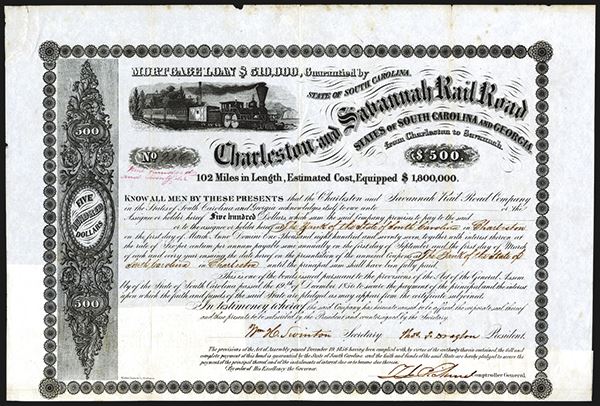 MORTGAGE LOAN $510,000, Guarantied by
STATE OF SOUTH CAROLINA.
Charleston and Savannah Rail Road
STATES OF SOUTH CAROLINA AND GEORGIA
from Charleston to Savannah.
No
$500.
102 Miles in Length, Estimated Cost, Equipped $1,800,000.
500
FIVE
HUNDRED
DOLLARS
500
KNOW ALL MEN BY THESE PRESENTS that the Charleston and Savannah Rail Road Company
in the States of South Carolina and Georgia acknowledges itself to owe unto or the
Assignee or holder hereof Five hundred Dollars which sum the said Company promises to pay to the said
or to the assignee or holder hereof at The Bank of the State of South Carolina in Charleston
on the first day of March Anno Domini One Thousand eight hundred and seventy seven together with interest thereon at
the rate of Six per centum per annum payable semi annually on the first day of September and the first day of March
of each and every year ensuing the date hereof on the presentation of the annexed Coupons at The Bank of the State of
South Carolina in Charleston until the principal sum shall have been fully paid.
This is one of the bonds issued pursuant to the provisions of the Act of the General Assem-
bly of the State of South Carolina passed the 19th of December 1856 to secure the payment of the principal and the interest
upon which the faith and funds of the said State are pledged as may appear from the certificate subjoined.
In testimony whereof the said Company has
and these presents to be subscribed by the President and countersigned by the Secretary.
Wm H. Swinton Secretary. Tho. F. Drayton President.
The provisions of the Act of Assembly passed December 19, 1856 having been complied with by virtue of the authority therein contained, the full and
complete payment of this bond is guarantied by the State of South Carolina and the faith and funds of the said State are hereby pledged to secure the
payment of the principal thereof and of the instalments of interest due or to become due thereon.
By order of His Excellency the Governor.
Comptroller General.